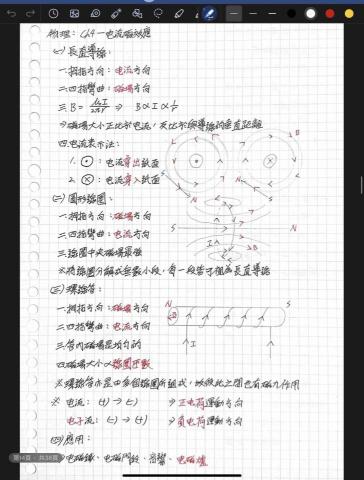 物理：Ch4－電流磁效應
(一) 長直導線：
一.拇指方向：電流方向
二.四指彎曲：磁場方向
三.B = μ₀I/2πr ⇒ B∝I∝1/r
⇒磁場大小正比於電流，反比於與導線的垂直距離
四.電流表示法：
1. ⊙：電流穿出紙面
2. ⊗：電流穿入紙面
(二) 圓形線圈：
一.拇指方向：磁場方向
二.四指彎曲：電流方向
三.線圈中央磁場最強
※將線圈分解成無數小段，每一段皆可視為長直導線
(三) 螺線管：
一.拇指方向：磁場方向
二.四指彎曲：電流方向
三.管內磁場是均勻的
四.磁場大小∝線圈匝數
※螺線管亦是由多個線圈所組成，
※ 電流：(+)→(-) ⇒正電荷運動方向
電子流：(-)→(+) ⇒負電荷運動方向
(四) 應用：
電磁鐵、電磁門鈴、音響、電磁爐
B
B
N
S
N
N
S
I
B
N
S
B
I
第14頁，共38頁